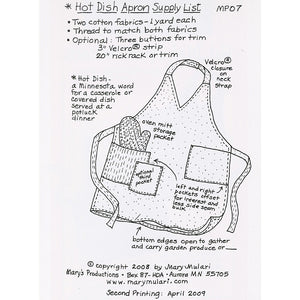 * Hot Dish Apron Supply List MP07
• Two cotton fabrics - 1 yard each
• Thread to match both fabrics
• Optional: Three buttons for trim
3" Velcro® strip
20" rick rack or trim
* Hot Dish -
a Minnesota word
for a casserole or
covered dish
served at a
potluck
dinner
Velcro®
closure
on
neck
strap
oven mitt
storage
pocket
optional
third
pocket
left and right
pockets offset
for interest and
less side seam
bulk
bottom edges open to gather
and carry garden produce or
© copyright 2008 by Mary Mulari
Mary's Productions • Box 87-HDA • Aurora MN 55705
www.marymulari.com
Second Printing: April 2009